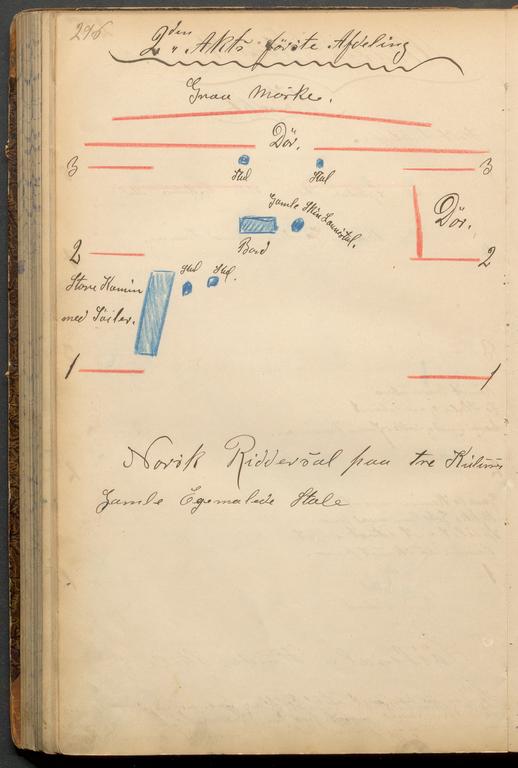 296
2den Akts förste Afdeling
Graa Mörke.
Dör.
3
Stol
Stol
3
Gamle
Dör.
Bord
2
2
Stol
Stol.
Store Kamin
med Söiler.
1
1
Norsk Riddersal paa tre Kulisser
Gamle Egemalede Stole